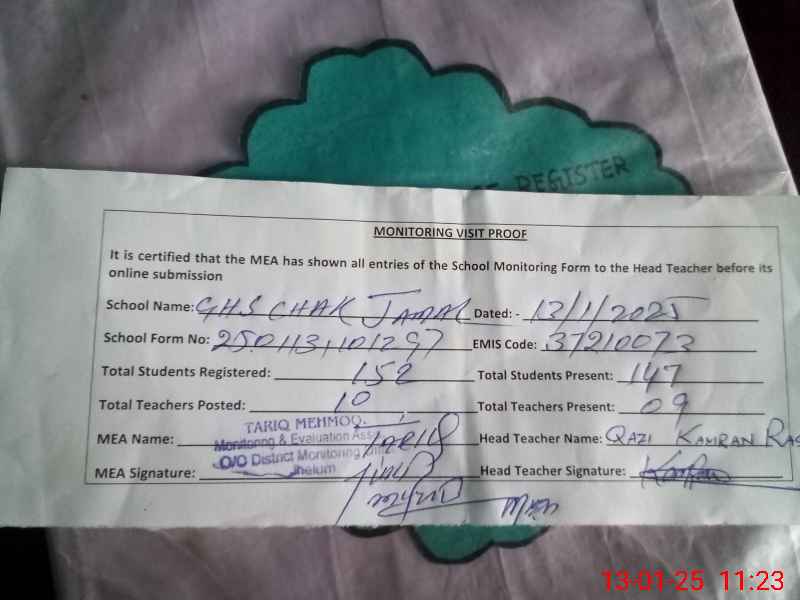 REGISTER
MONITORING VISIT PROOF
It is certified that the MEA has shown all entries of the School Monitoring Form to the Head Teacher before its
online submission
School Name: GHS CHAK JAMAL Dated: - 13/1/2025
School Form No: EMIS Code: 37210073
Total Students Registered: 152 Total Students Present: 147
Total Teachers Posted: 10 Total Teachers Present: 09
TARIQ MEHMOO
MEA Name: TARIQ Head Teacher Name: QAZI KAMRAN RAS
Monitoring & Evaluation Ass
O/O District Monitoring
Jhelum
MEA Signature: Head Teacher Signature: Kamran
13-01-25 11:23